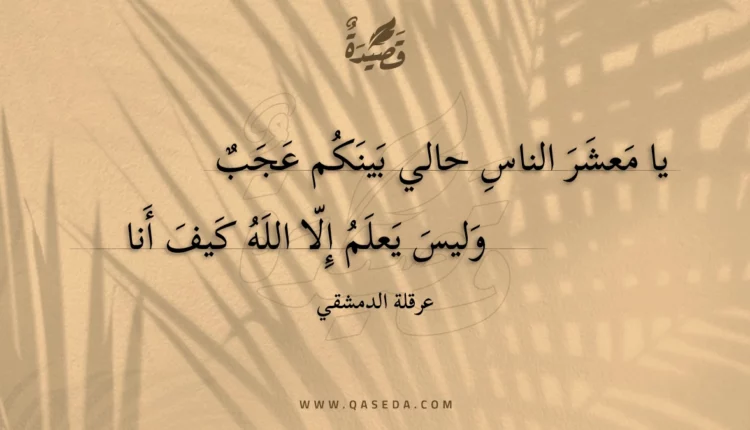 قَصِيدَةٌ
يا مَعشَرَ الناسِ حالي بَينَكُم عَجَبٌ
وَليسَ يَعلَمُ إِلّا اللَهُ كَيفَ أَنا
عرقلة الدمشقي
WWW.QASEDA.COM